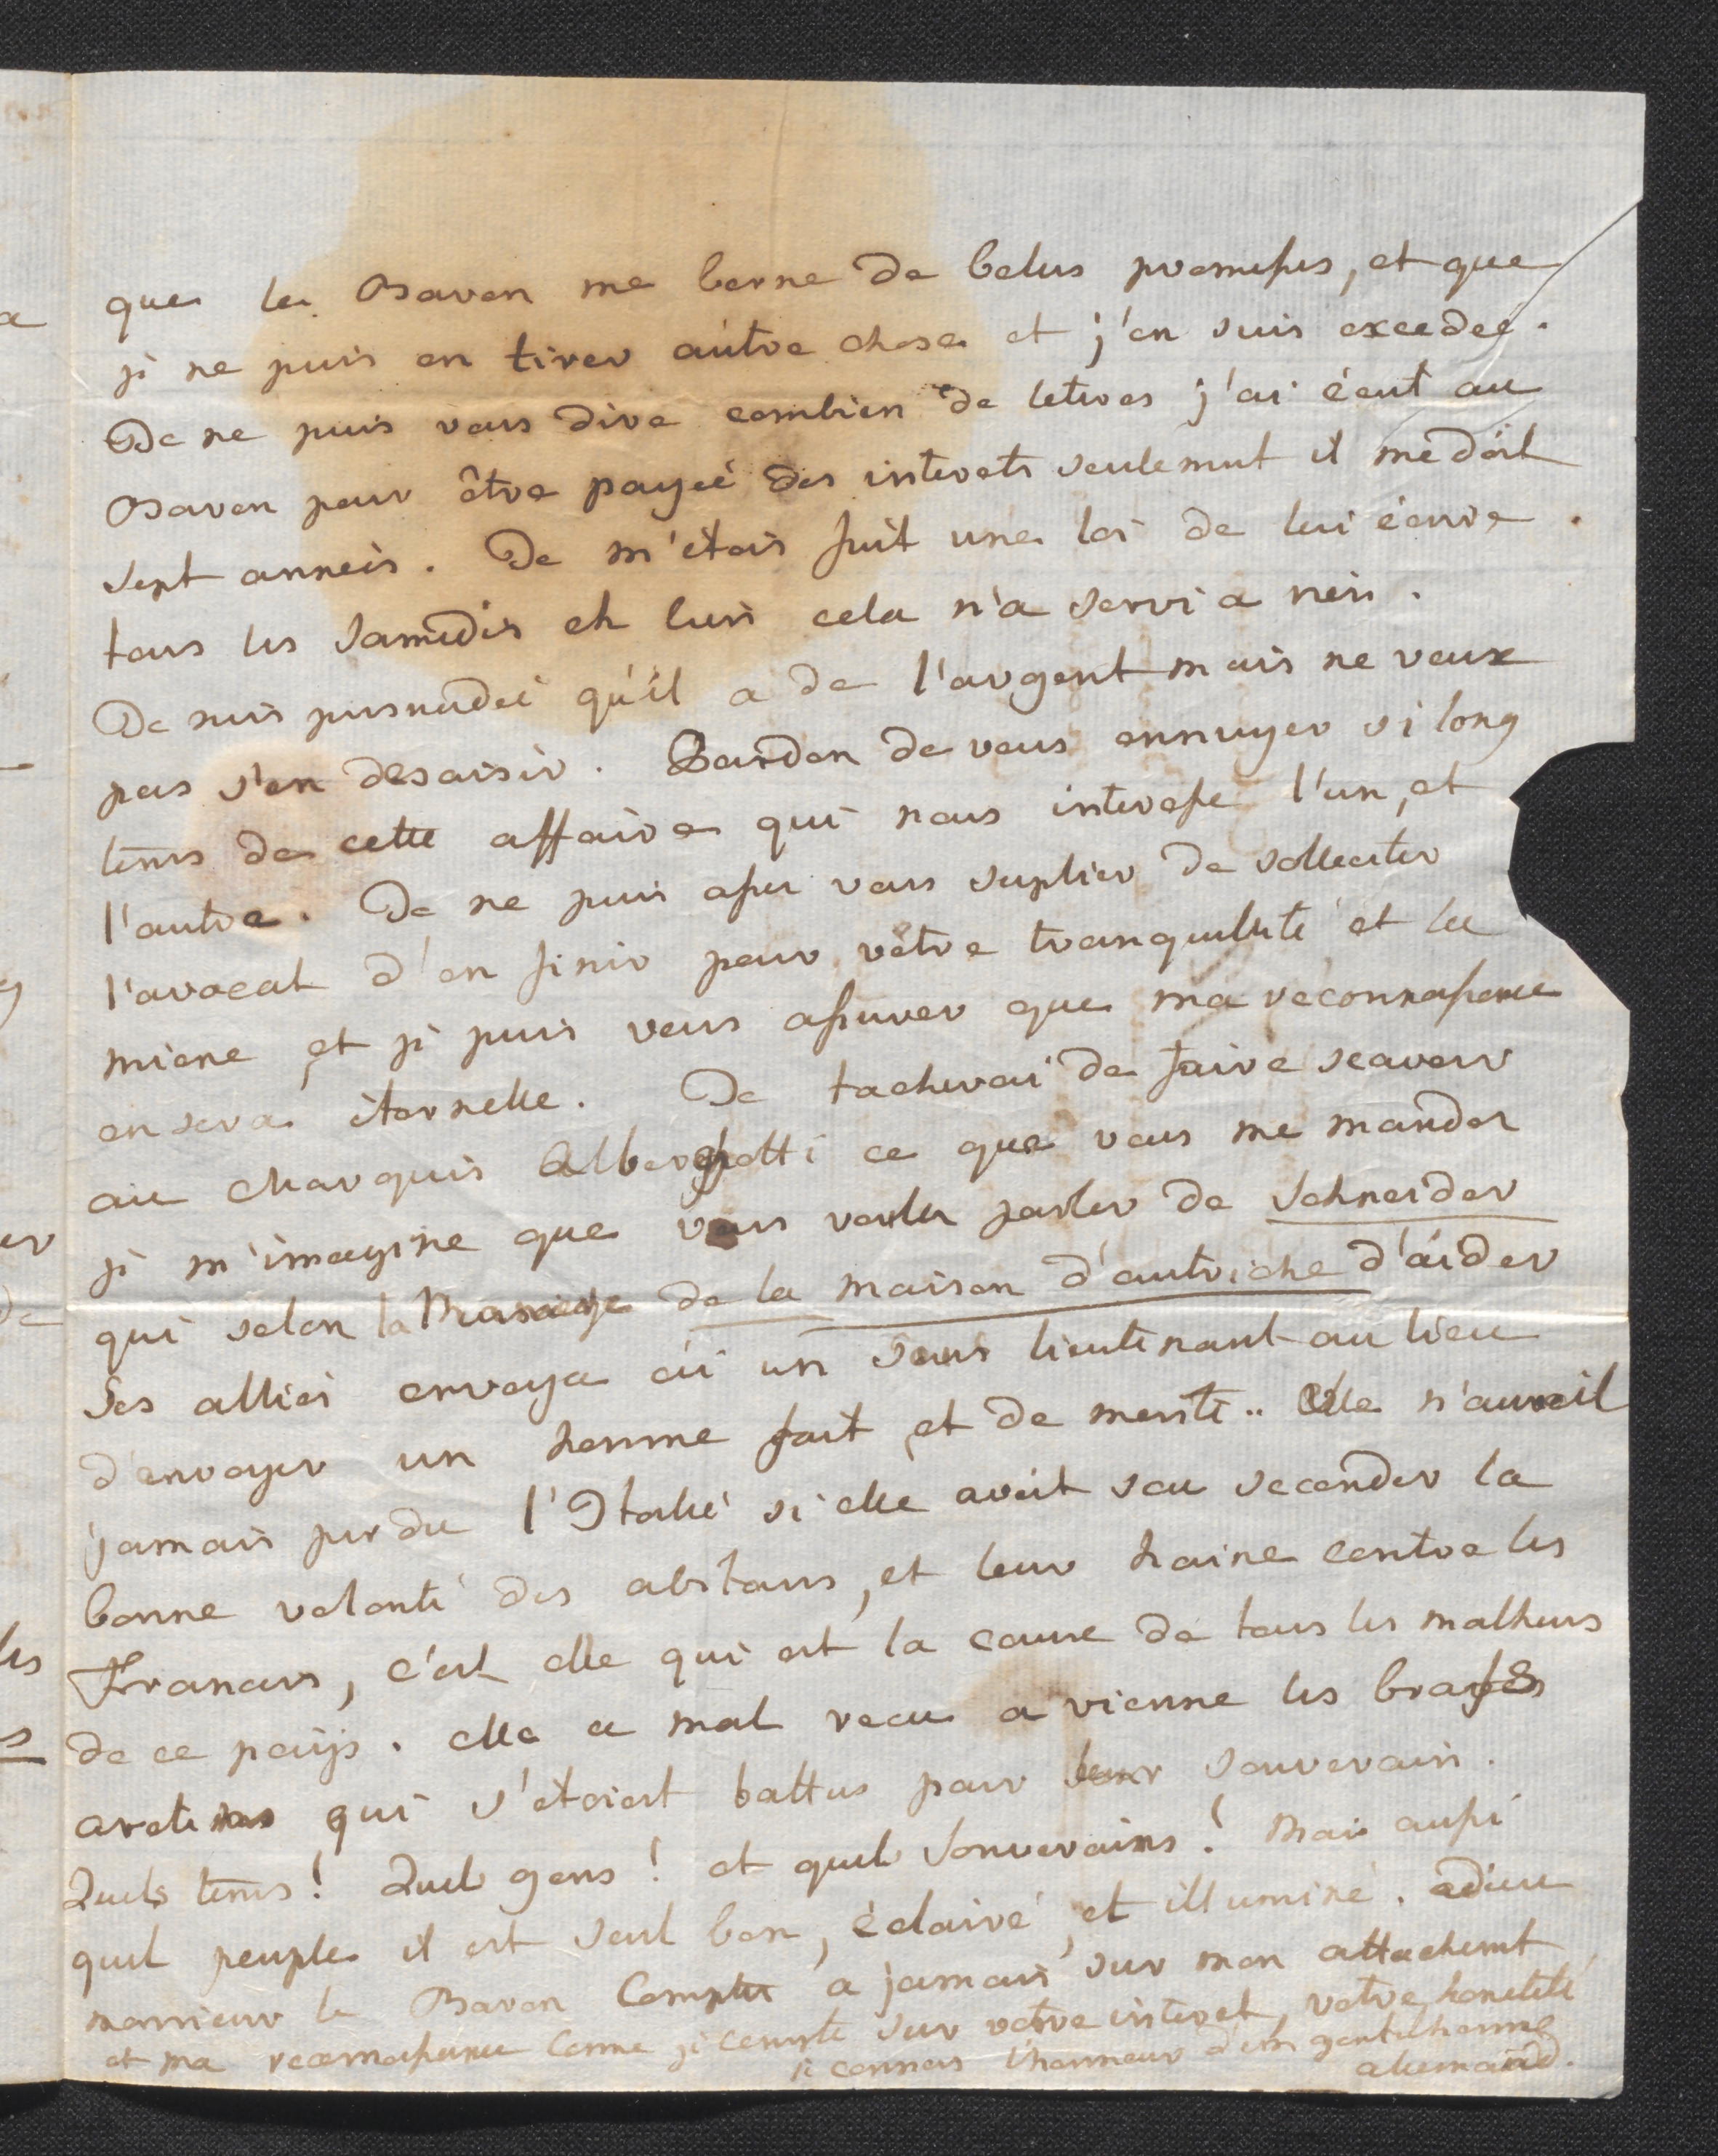 que le Baron me berne de belles promesses, et que
je ne puis en tirer autre chose et j'en suis excedée.
Je ne puis vous dire combien de lettres j'ai écrit au
Baron pour être payée des interets seulement il me doit
sept années. Je m'étois fait une loi de lui écrire
tous les samedis eh bien cela n'a servi a rien.
Je suis persuadée qu'il a de l'argent mais ne veux
pas s'en desaisir. Pardon de vous ennuyer si long
tems de cette affaire qui nous interesse l'un, et
l'autre. Je ne puis assez vous suplier de solleciter
l'avocat d'en finir pour vôtre tranquillité et la
miene, et je puis vous assurer que ma reconnassance
en sera éternelle. Je tacherai de faire scavoir
au Marquis Albergotti ce que vous me mandez
je m'imagine que vous voulez parler de Schneider
qui selon la de la maison d'autriche d'aider
ses alliés envoya ici un sous lieutenant au lieu
d'envoyer un homme fait, et de merite.. Elle n'auroit
jamais perdu l'Italie si elle avoit scu seconder la
bonne volonté des abitans, et leur haine contre les
Francais, c'est elle qui est la cause de tous les malheurs
de ce païjs. elle a mal recu a vienne les braves
aretins qui s'étoient battus pour leur souverain.
Quels tems! Quels gens! et quels Souverains! Mais aussi
quel peuple il est seul bon, éclairé, et illuminé. adieu
monsieur le Baron Comptez a jamais sur mon attachement
et ma reconnassance Comme je compte sur votre interet, votre honeteté
je connois l'honneur d'un gentilhomme
allemand.